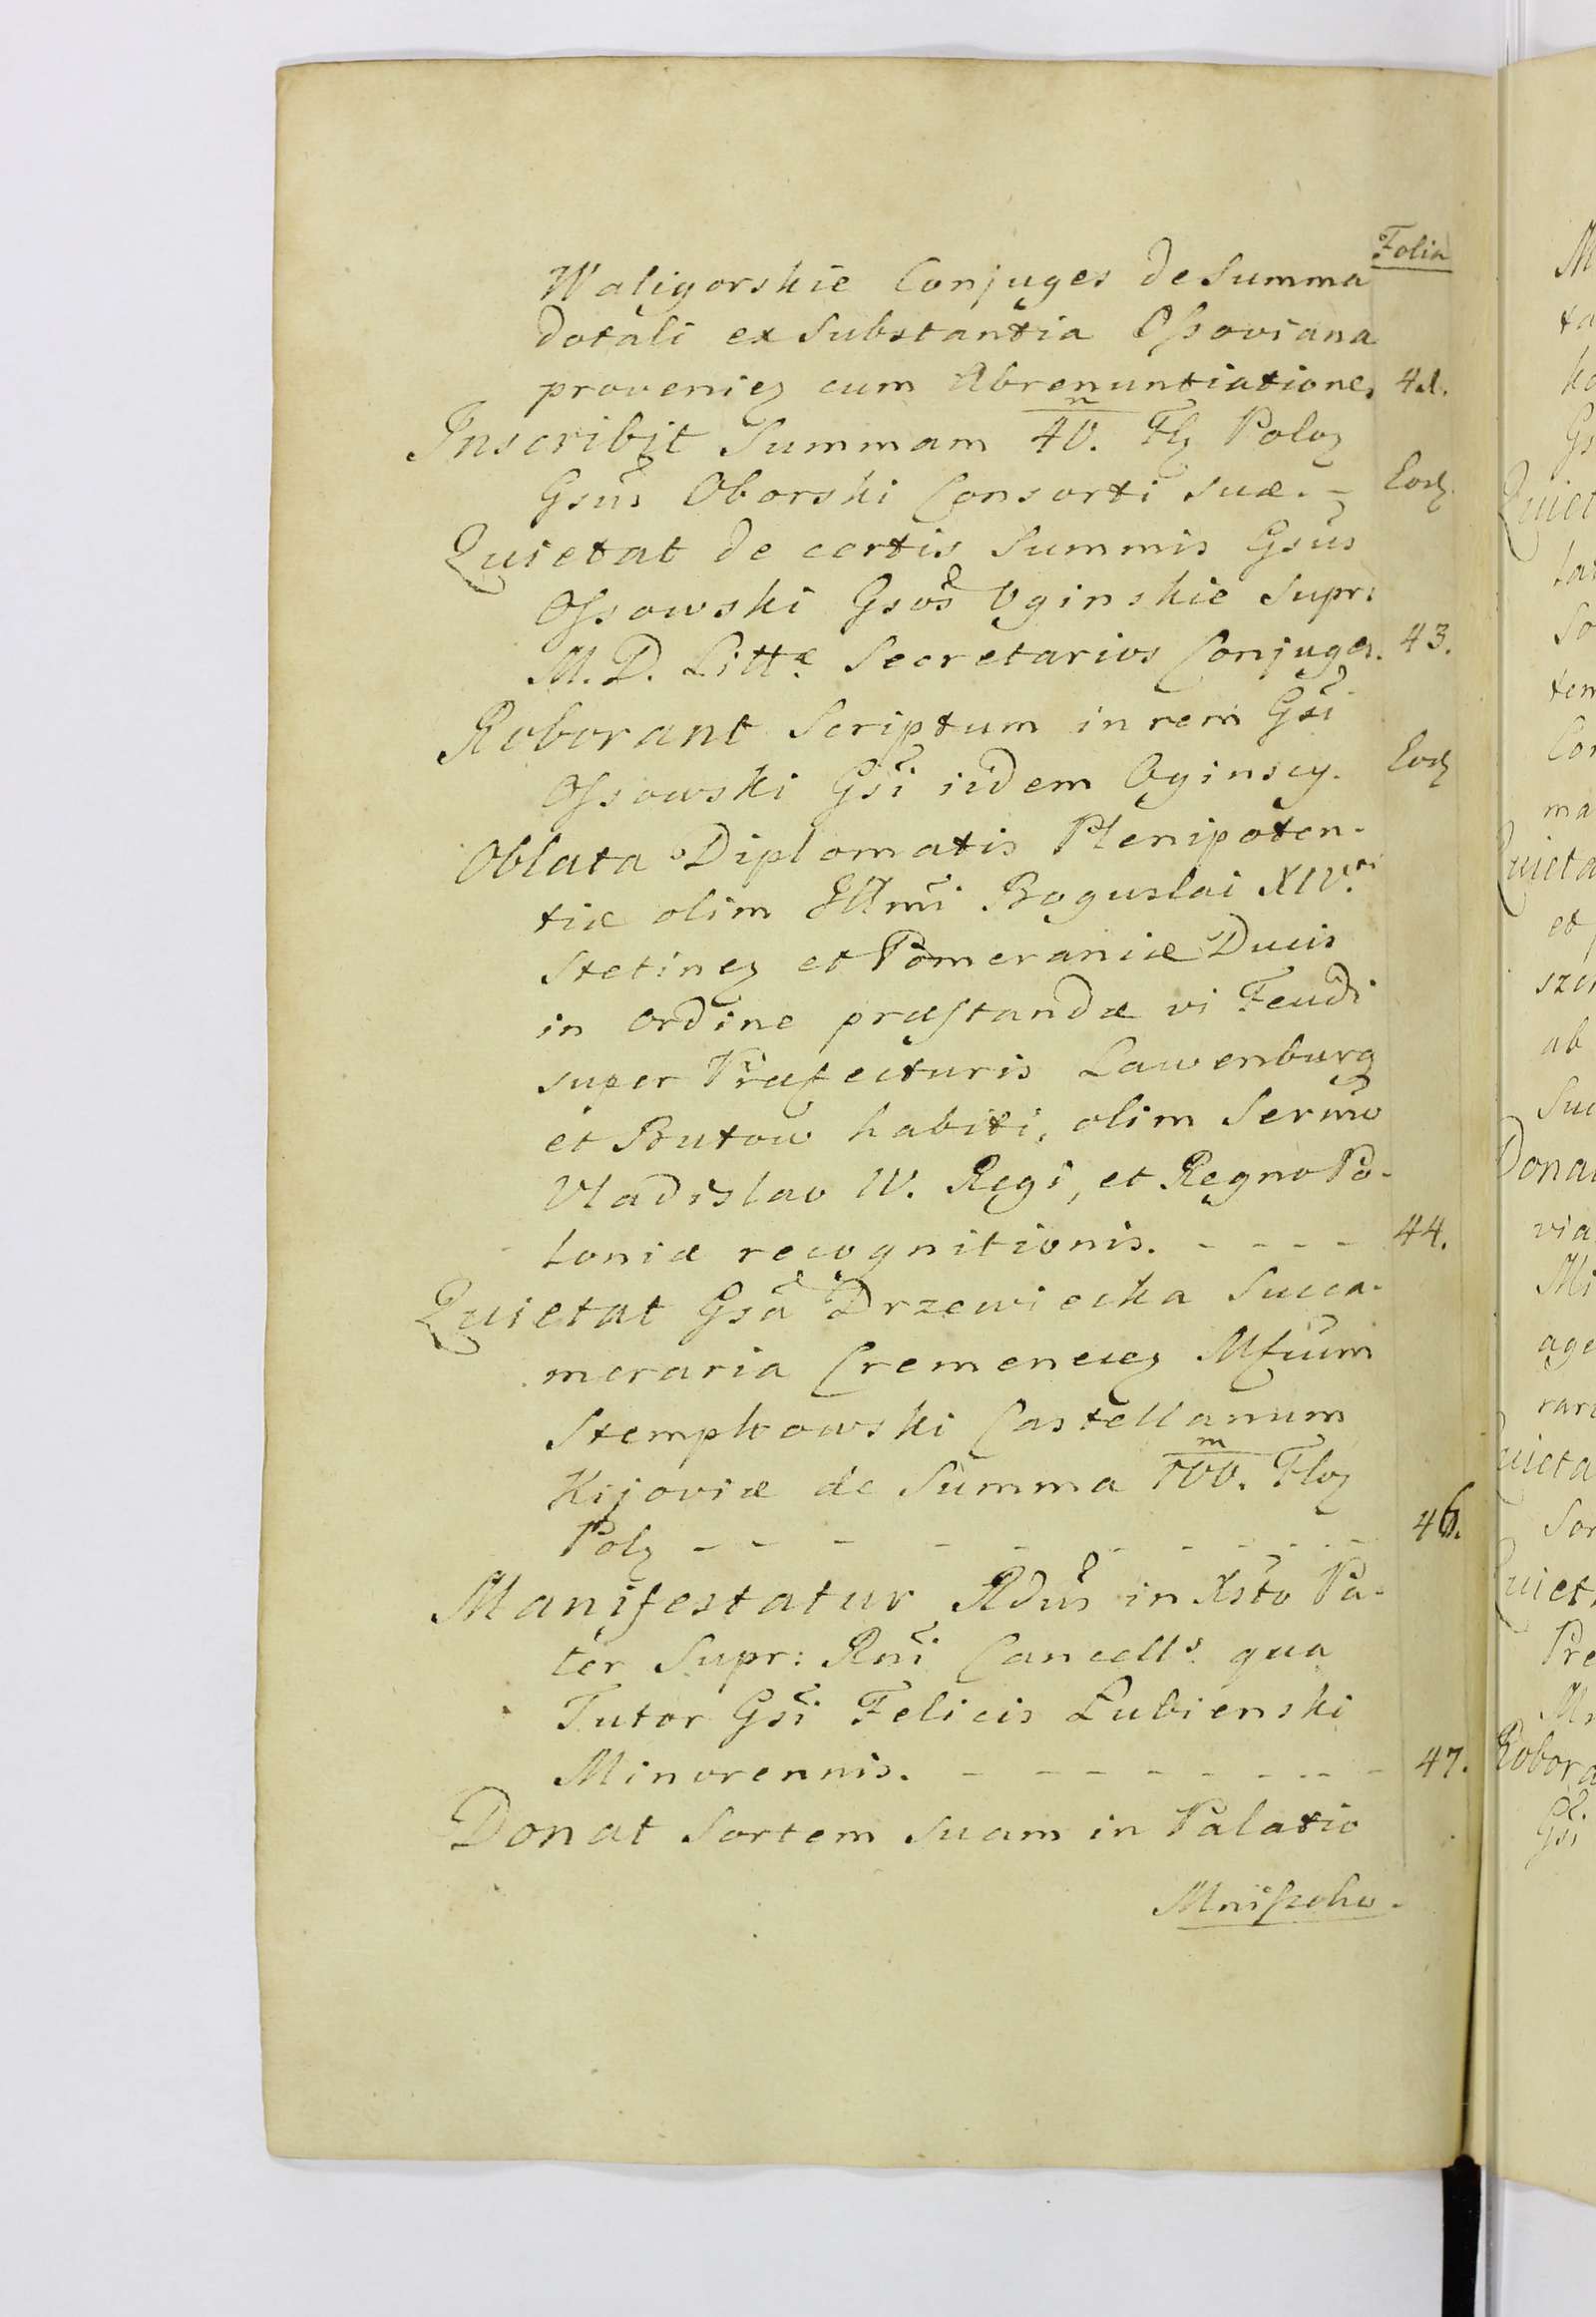 Folia
Waligorskie Conjuges de Summa
dotali ex Substantia Ossoviana
provenieӡ cum Abrenuntiatione. 42.
Inscribit Summam 40.m Flӡ Poloӡ
Gsus Oborski Consorti suæ. - Eodӡ
Quietat de certis Summis Gsus
Ossowski Gsos Oginskie Supr:
M. D. Littæ Secretarios Conjuges. 43.
Roborant Scriptum in rem Gsi
Ossowski Gsi iidem Oginscy. Eodӡ
Oblata Diplomatis Plenipoten-
tiæ olim Illmi Boguslai XIV.ti
Stetineӡ et Pomeraniæ Ducis
in ordine præstandæ vi Feudi
super Præfecturis Lawenburg
et Butow habiti, olim Sermo
Vladislao IV. Regi, et Regno Po-
loniæ recognitionis. - - - - 44.
Quietat Gsa Drzewiecka Succa-
meraria Cremeneceӡ Mfium
Stempkowski Castellanum
Kijoviæ de Summa 100.m Floӡ
Polӡ - - - - - - - - - 46.
Manifestatur Rdus in Xsto Pa-
ter Supr: Rni Cancells qua
Tutor Gsi Felicis Lubienski
Minorennis. - - - - - - - - 47.
Donat Sortem suam in Palatio
Mniszcho-